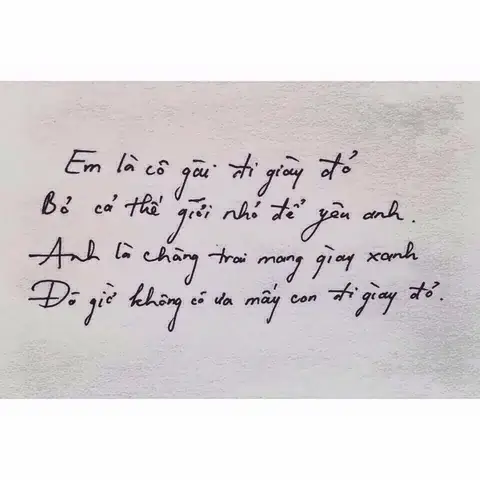 Em là cô gái đi giày đỏ
Bỏ cả thế giới nhỏ để yêu anh.
Anh là chàng trai mang giày xanh
Đó giờ không có ưa mấy con đi giày đỏ.